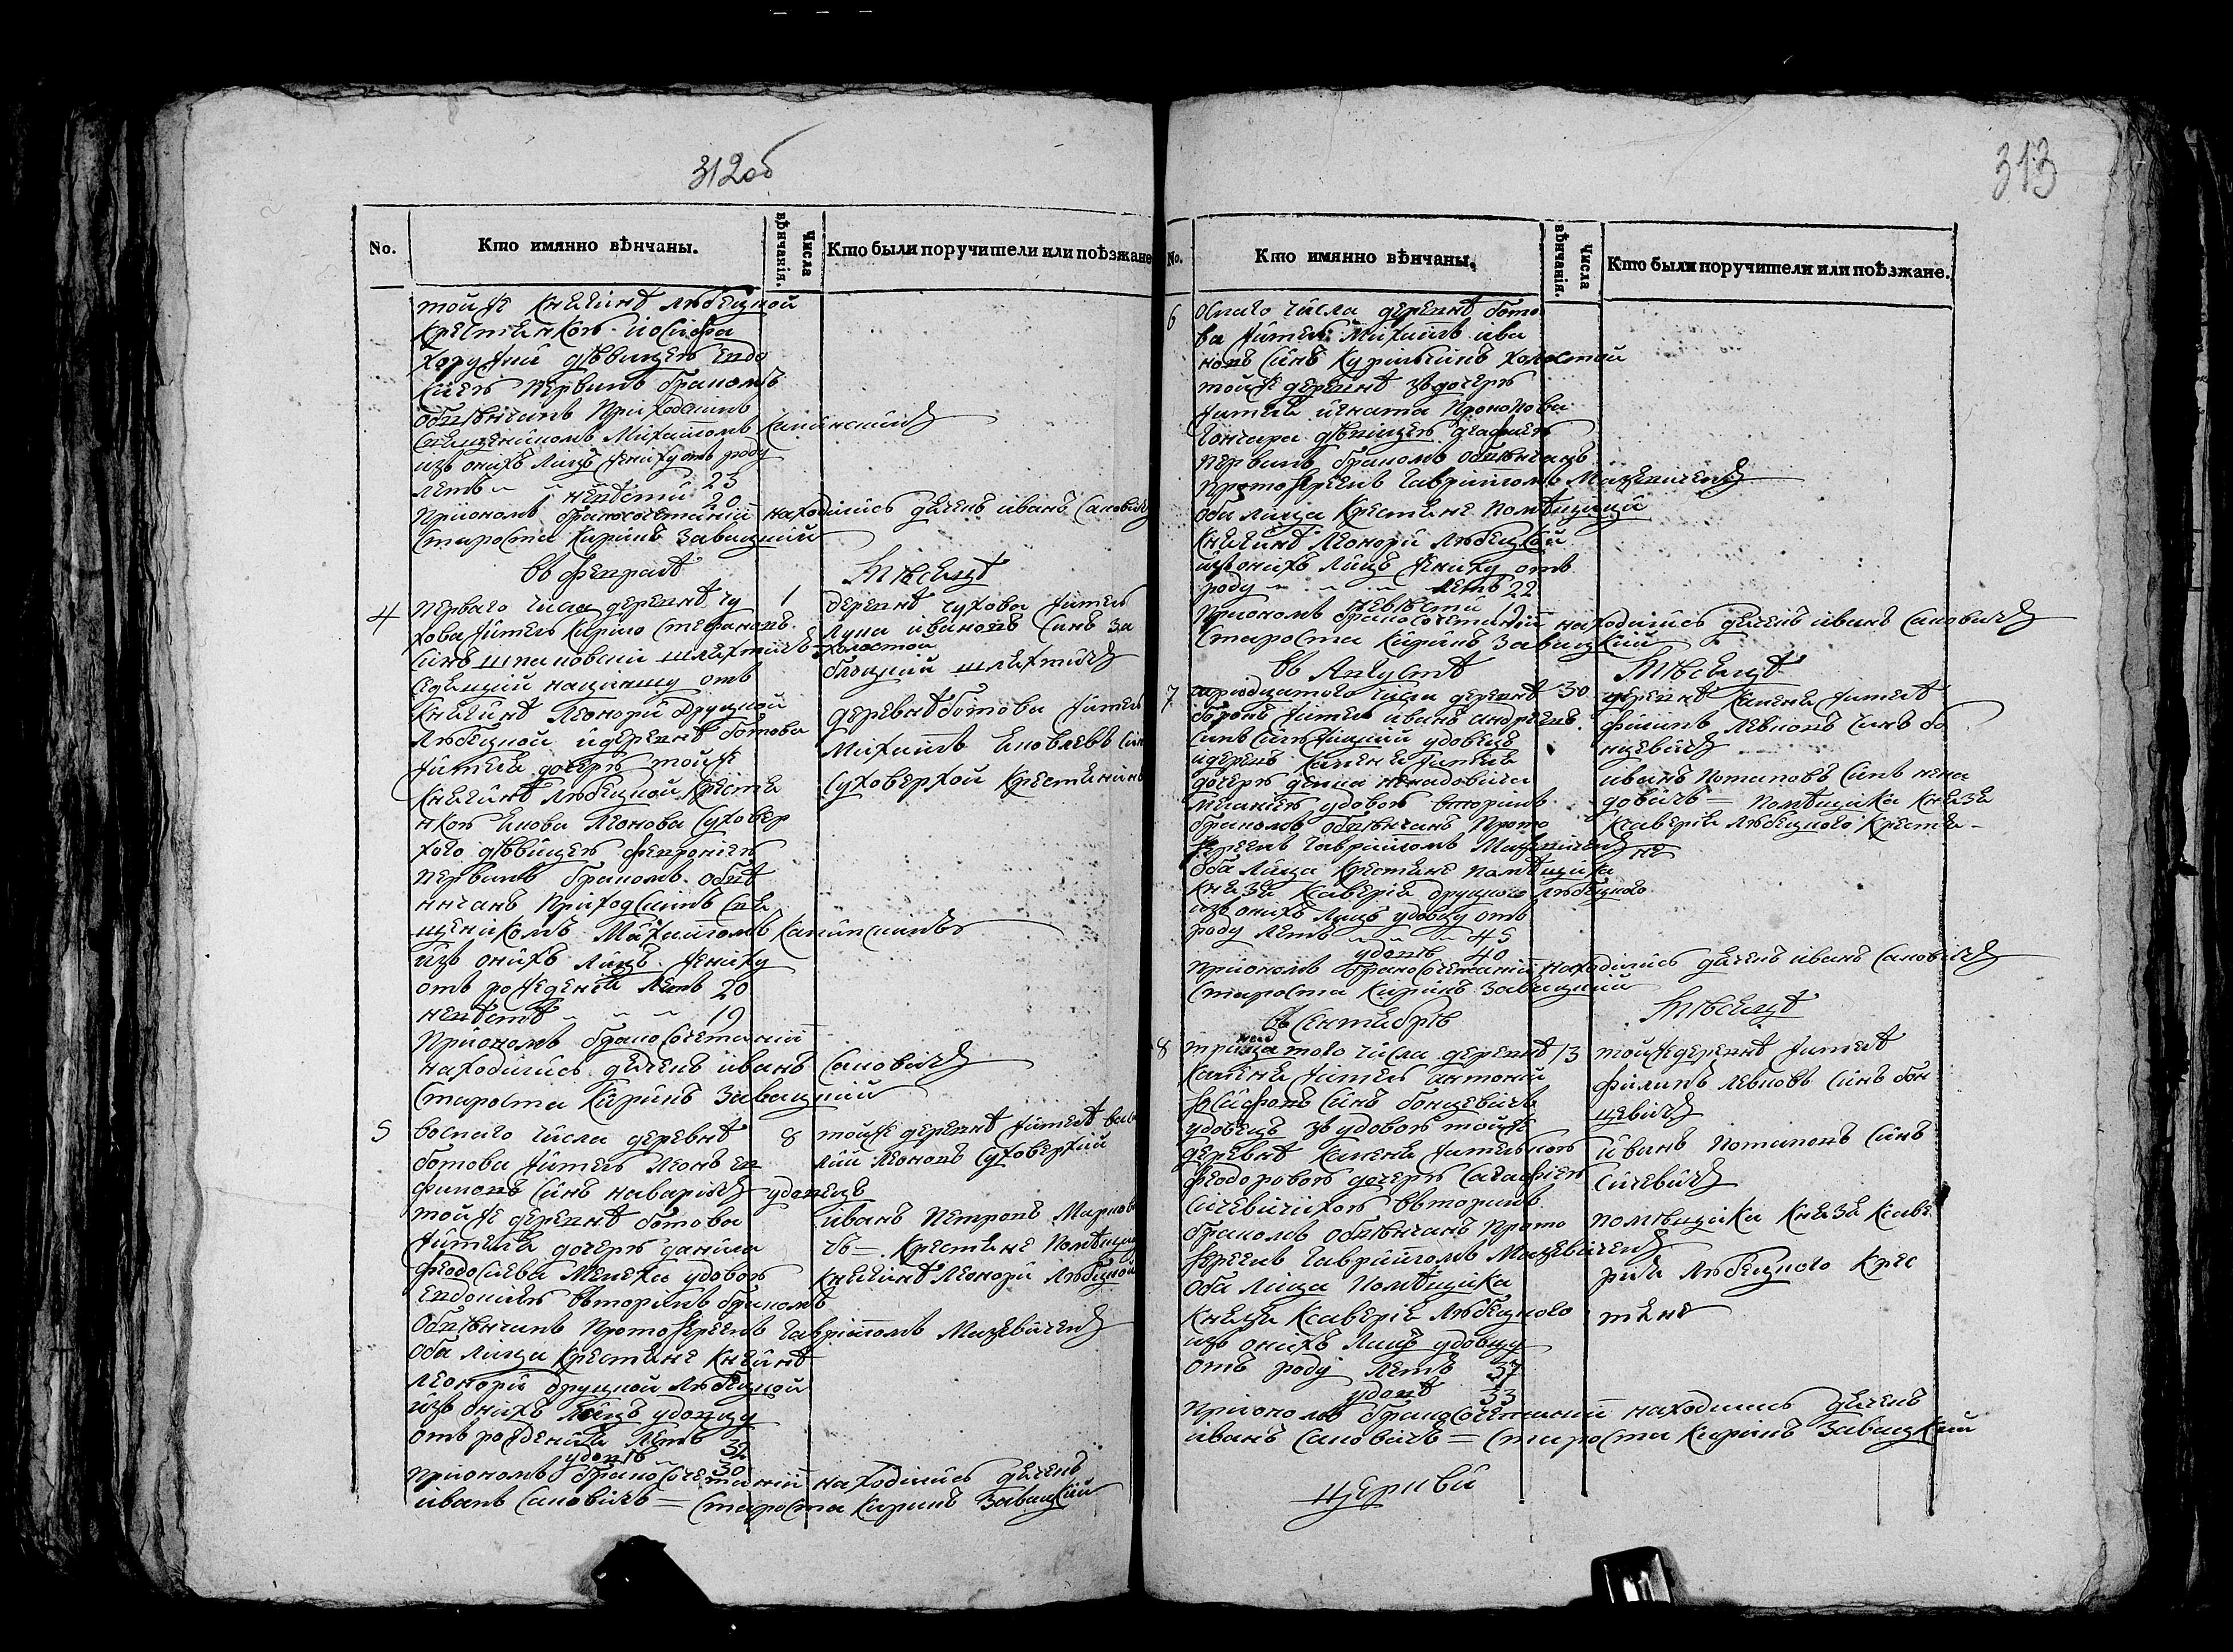 312об
No.
Кто имянно вѣнчаны.
Числа вѣнчанія.
Кто были поручители или поѣзжане
той же княгинѣ любецкой
крестянкою иосифа
девицею евдо
киею первымъ бракомъ
обвѣнчанъ приходскимъ
священникомъ Михаиломъ
изъ онихъ лицъ жениху отъ роду
летъ 23
невести 20
приономъ бракосочетаніи находились дячекъ иванъ Саковичъ
Староста Кирикъ Завацкий
въ февралѣ
Мѣсецѣ
4
перваго числа деревнѣ чу
1
хова житель Кирило Стефановъ
синъ шпаковски шляхтичъ холостой
седящий начиншу отъ
княгинѣ Леонори друцкой
любецкой идеревнѣ ботова
жителя дочерѣ тойже
княгинѣ любецкой крестя
нкою Якова Леонова Суховер
хого дѣвицею феврониею
первимъ бракомъ обвѣ
нчанъ приходскимъ свя
щеникомъ Михаиломъ
изъ онихъ лицъ жениху
отъ рожденія летъ 20
невѣстѣ 19
приономъ бракосочетаніи
находились дячекъ иванъ Саковичъ
Староста Кирикъ Завацкий
деревнѣ чухова житель
Лука ивановъ синъ за
блоцкий шляхтичъ
деревнѣ ботова житель
Михаилъ Яковлевъ син
суховерхой крестянинъ
5
восмаго числа деревнѣ
8
ботова житель Леонъ
синъ удовецъ
тойже деревнѣ ботова
жителя дочерѣ данила
феодосиева удовою
Евдокиею вторимъ бракомъ
обвѣнчанъ протоиереемъ Гавриломъ Мацевичемъ
оба лица крестяне княгинѣ
леонори друцкой любецкой
изъ онихъ лицъ удовцу
отъ рожденія летъ 32
удовѣ 30
приономъ бракосочетаніи находились дячекъ
иванъ Саковичъ = Староста Кирикъ Завацкий
тойже деревнѣ жителѣ
Леоновъ Суховерхий
иванъ Петровъ
крестяне помѣщицы
княгинѣ леонори любецкой
313
No.
Кто имянно вѣнчаны.
Числа вѣнчанія.
Кто были поручители или поѣзжане.
6
осмаго числа деревнѣ бото
ва житель Михаилъ ива
новъ синъ холостой
тойже деревнѣ здочерю
жителя игната Прокопова
гончара дѣвицею агафиею
первимъ бракомъ обвѣнчанъ
протоиереемъ Гавриломъ Мацевичемъ
оба лица крестяне помѣщици
княгинѣ леонори любецкой
изъ онихъ лицъ жениху отъ
роду летъ 22
невѣсти 19
приономъ бракосочетаніи находились дячекъ иванъ Саковичъ
Староста Кирикъ Завацкий
въ Августѣ
Мѣсецѣ
7
тридцатого числа деревнѣ
30
боровъ житель иванъ андреевъ
синъ удовецъ
идеревнѣ каменя жителя
дочерѣ ненадовича
удовою вторимъ
бракомъ обвѣнчанъ прото
иереемъ Гавриломъ Мацевичемъ
оба лица крестяне помѣщика
князя ксаверія друцкого любецкого
изъ онихъ лицъ удовцу отъ
роду летъ 45
удовѣ 40
приономъ бракосочетаніи находились дячекъ иванъ Саковичъ
Староста Кирикъ Завацкий
деревнѣ каменя жителѣ
филипъ левковъ синъ бо
нцевичъ
иванъ потаповъ синъ нена
довичъ = помѣщика князя
ксаверія любецкого крестя-
не
въ сентябрѣ
Мѣсецѣ
8
тринадцатого числа деревнѣ
13
каменя житель антоній
иосифовъ синъ бонцевичъ
удовецъ зъ удовою тойже
деревнѣ каменя
феодоровою дочерю
вторимъ
бракомъ обвѣнчанъ прото
иереемъ Гавриломъ Мацевичемъ
оба лица помѣщика
князя ксаверія любецкого
изъ онихъ лицъ удовцу
отъ роду летъ 37
удовѣ 33
приономъ бракосочетаніи находились дячекъ
иванъ Саковичъ = Староста Кирикъ Завацкий
тойже деревнѣ жителѣ
филипъ левковъ синъ бон
цевичъ
иванъ потаповъ синъ
помѣщика князя ксаве
рія любецкого крес
тяне
церкви